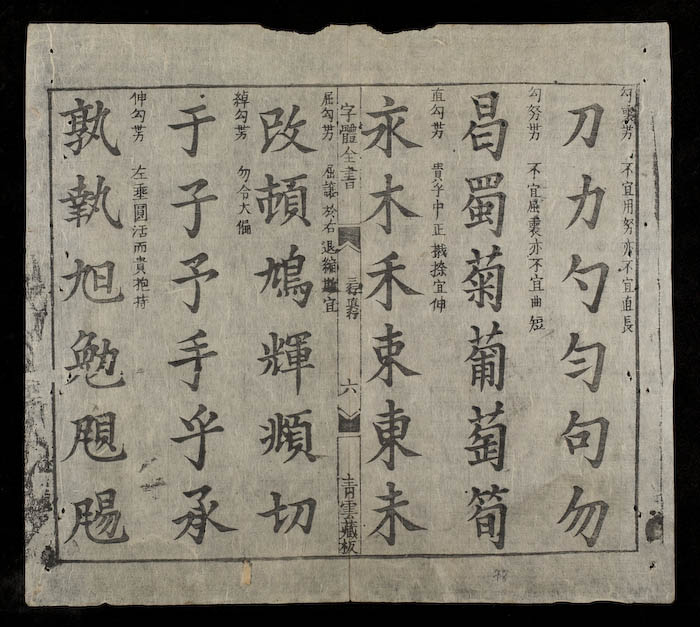 勾裹势 不宜用努亦不宜直長
刀力勺匀句勿
勾努势 不宜屈裹亦不宜曲短
曷蜀菊葡萄筍
直勾势 貴乎中正 撇捺宜伸
永木禾東東未
字體全書 六 青雲藏板
屈勾势 屈讓於右 退縮宜
改頓鳩輝切
綽勾势 勿令大偏
于子予手乎承
伸勾势 左垂圓活而貴抱持
孰執旭勉